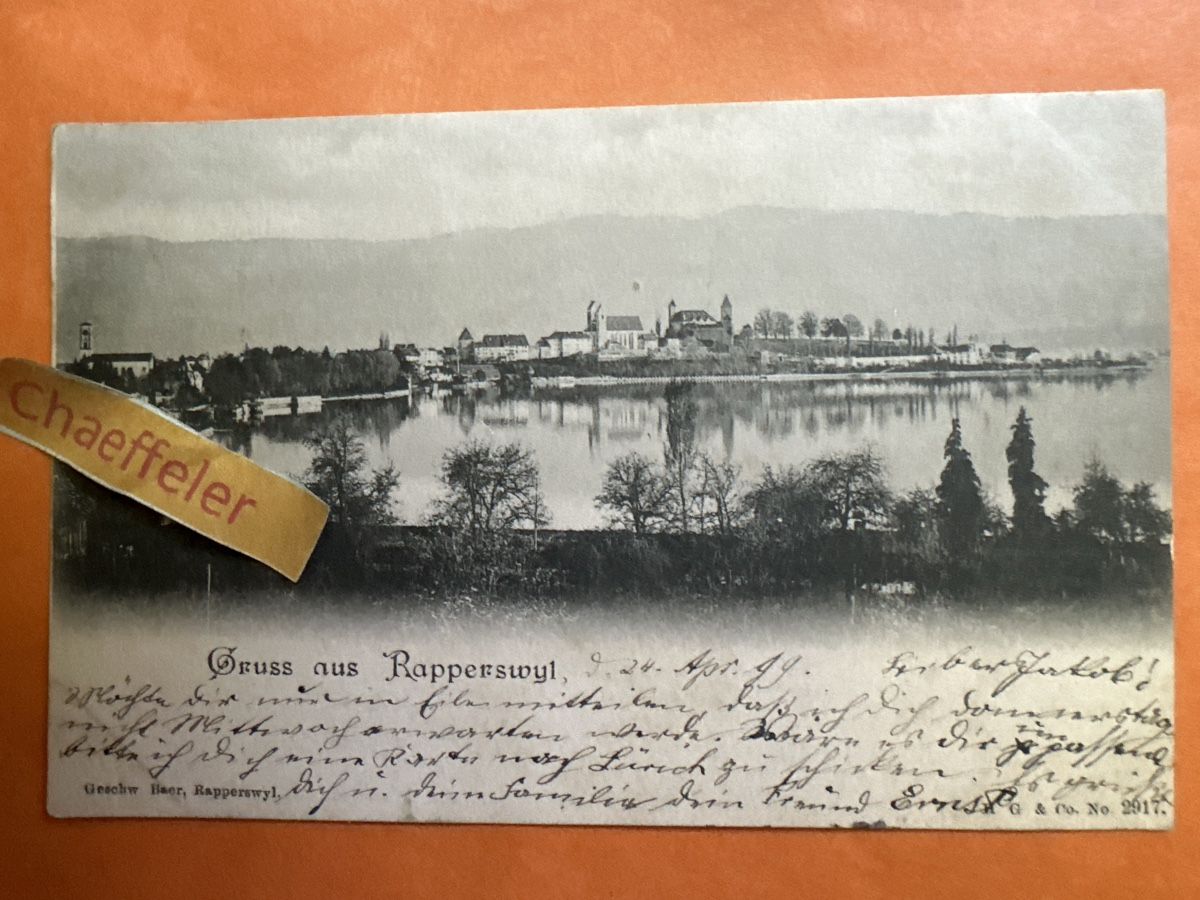 Chaeffeler
Gruss aus Rapperswyl, d. 24. Apr. 99. Lieber Jakob!
Möchte Dir nur in Eile mitteilen, daß ich Dich Donnerstag
nicht Mittwoch erwarten werde. Wäre es Dir unpassend
bitte ich Dich eine Karte nach Zürich zu schicken. Es grüßt
Geschw Baer, Rapperswyl, Dich u. deine Familie dein Freund Ernst G & Co. No 2917.